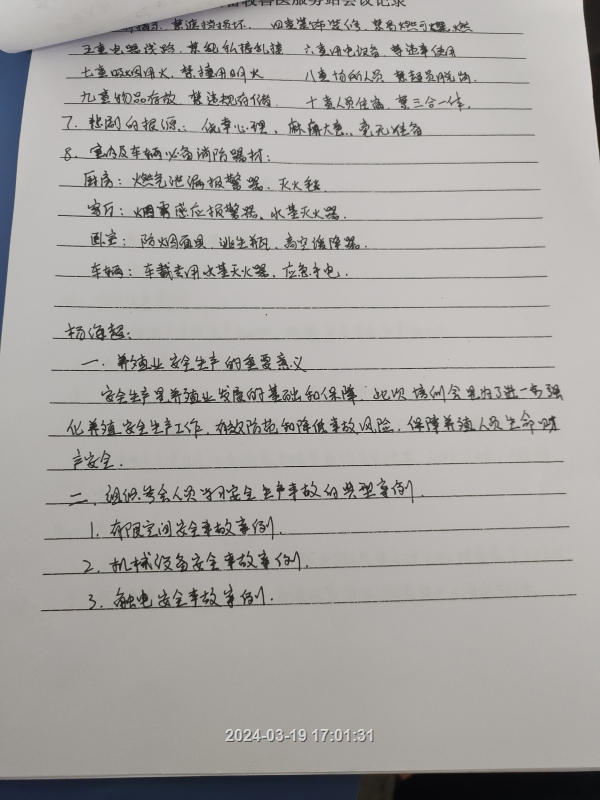 畜牧兽医服务站会议记录
禁遮挡损坏. 四查装饰装修, 禁易燃可燃
五查电器线路, 禁乱私接乱接 六查用电设备, 禁违章使用
七查吸烟用火, 禁擅用明火 八查场所人员, 禁
九查物品存放, 禁违规存储. 十查人员住宿, 禁三合一体.
7. 悲剧的根源: 侥幸心理、麻痹大意、毫无准备
8. 室内及车辆必备消防器材:
厨房: 燃气泄漏报警器、灭火毯
客厅: 烟雾感应报警器、水基灭火器.
卧室: 防烟面具、逃生瓶、高空缓降器.
车辆: 车载专用水基灭火器、应急手电.
杨海超:
一、养殖业安全生产的重要意义
安全生产是养殖业发展的基础和保障, 此次培训会是为了进一步强
化养殖安全生产工作, 有效防范和降低事故风险, 保障养殖人员生命财
产安全.
二、组织参会人员学习安全生产事故的典型案例.
1. 有限空间安全事故案例.
2. 机械设备安全事故案例.
3. 触电安全事故案例.
2024-03-19 17:01:31